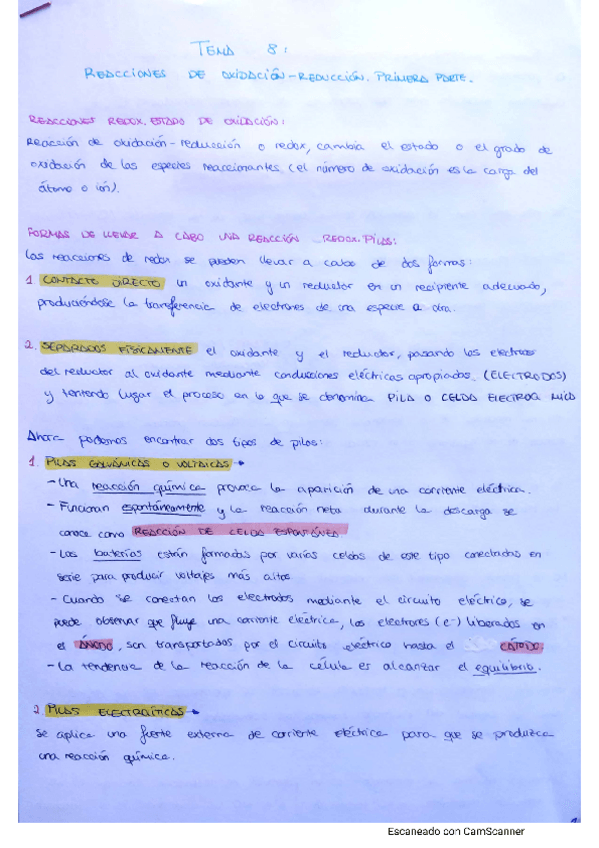 TEMA 8:
REACCIONES DE OXIDACIÓN-REDUCCIÓN. PRIMERA PARTE.
REACCIONES REDOX. ESTADO DE OXIDACIÓN:
Reacción de oxidación-reducción o redox, cambia el estado o el grado de
oxidación de las especies reaccionantes (el número de oxidación es la carga del
átomo o ión).
FORMAS DE LLEVAR A CABO UNA REACCIÓN REDOX. PILAS:
Las reacciones de redox se pueden llevar a cabo de dos formas:
1. CONTACTO DIRECTO un oxidante y un reductor en un recipiente adecuado,
produciéndose la transferencia de electrones de una especie a otra.
2. SEPARADOS FÍSICAMENTE el oxidante y el reductor, pasando los electrones
del reductor al oxidante mediante conducciones eléctricas apropiadas. (ELECTRODOS)
y teniendo lugar el proceso en lo que se denomina PILA O CELDA ELECTROQUÍMICA
Ahora podemos encontrar dos tipos de pilas:
1. PILAS GALVÁNICAS O VOLTAICAS →
- Una reacción química provoca la aparición de una corriente eléctrica.
- Funcionan espontáneamente y la reacción neta durante la descarga se
conoce como REACCIÓN DE CELDA ESPONTÁNEA
- Las baterías están formadas por varias celdas de este tipo conectadas en
serie para producir voltajes más altos
- Cuando se conectan los electrodos mediante el circuito eléctrico, se
puede observar que fluye una corriente eléctrica, los electrones (e⁻) liberados en
el ÁNODO, son transportados por el circuito eléctrico hasta el CÁTODO.
- La tendencia de la reacción de la célula es alcanzar el equilibrio.
2. PILAS ELECTROLÍTICAS →
Se aplica una fuente externa de corriente eléctrica para que se produzca
una reacción química.
Escaneado con CamScanner